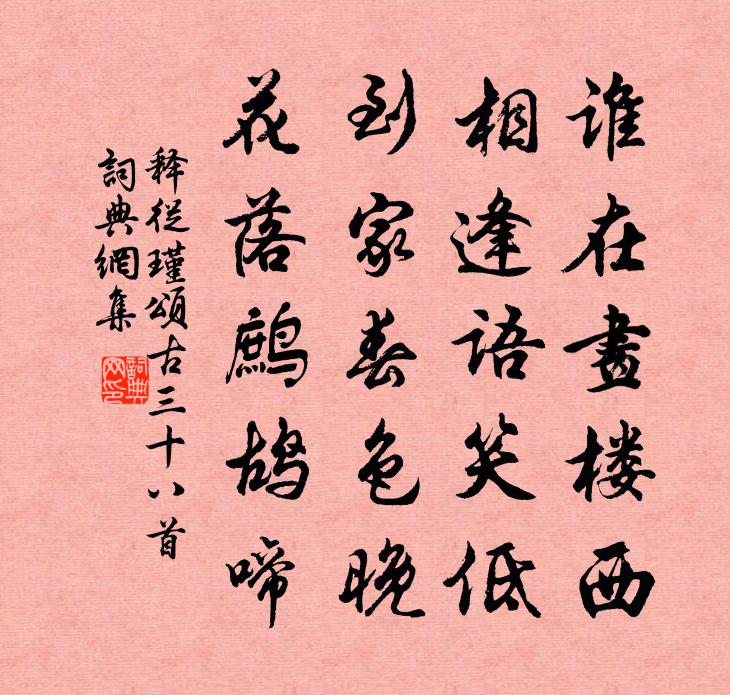 谁在畫楼西
相逢语笑低
到家春色晚
花落鹧鸪啼
释從瑾頌古三十八首
詞典網集
詞典网印